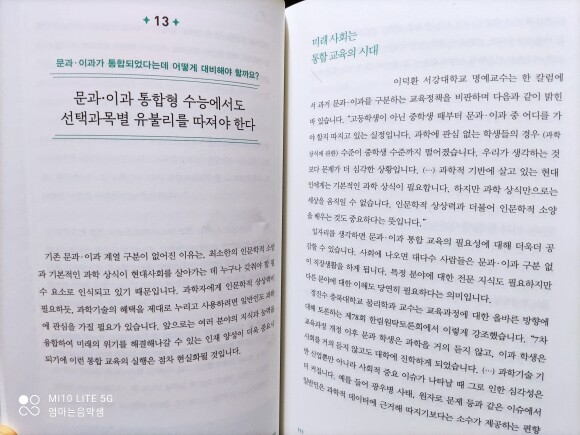 13
문과·이과가 통합되었다는데 어떻게 대비해야 할까요?
문과·이과 통합형 수능에서도
선택과목별 유불리를 따져야 한다
기존 문과·이과 계열 구분이 없어진 이유는, 최소한의 인문학적 소양
과 기본적인 과학 상식이 현대사회를 살아가는 데 누구나 갖춰야 할 필
수 요소로 인식되고 있기 때문입니다. 과학자에게 인문학적 상상력이
필요하듯, 과학기술의 혜택을 제대로 누리고 사용하려면 일반인도 과학
에 관심을 가질 필요가 있습니다. 앞으로는 여러 분야의 지식과 능력을
융합하여 미래의 위기를 해결해나갈 수 있는 인재 양성이 더욱 중요시
되기에 이런 통합 교육의 실행은 점차 현실화될 것입니다.
미래 사회는
통합 교육의 시대
이덕환 서강대학교 명예교수는 한 칼럼에
서 과거 문과·이과를 구분하는 교육정책을 비판하며 다음과 같이 밝힌
바 있습니다. "고등학생이 아닌 중학생 때부터 문과·이과 중 어디를 가
야 할지 따지고 있는 실정입니다. 과학에 관심 없는 학생들의 경우 (과학
상식에 관한) 수준이 중학생 수준까지 떨어졌습니다. 우리가 생각하는 것
보다 문제가 더 심각한 상황입니다. (…) 과학적 기반에 살고 있는 현대
인에게는 기본적인 과학 상식이 필요합니다. 하지만 과학 상식만으로는
세상을 움직일 수 없습니다. 인문학적 상상력과 더불어 인문학적 소양
을 배우는 것도 중요하다는 뜻입니다."
일자리를 생각하면 문과·이과 통합 교육의 필요성에 대해 더욱더 공
감할 수 있습니다. 사회에 나오면 대다수 사람들은 문과·이과 구분 없
이 직장생활을 하게 됩니다. 특정 분야에 대한 전문 지식도 필요하지만
다른 분야에 대한 이해도 당연히 필요하다는 의미입니다.
정진수 충북대학교 물리학과 교수는 교육과정에 대한 올바른 방향에
대해 토론하는 제78회 한림원탁토론회에서 이렇게 강조했습니다. "7차
교육과정 개정 이후 문과 학생은 과학을 거의 듣지 않고, 이과 학생은
사회를 거의 듣지 않고도 대학에 진학하게 되었습니다. (…) 과학기술 기
반 산업뿐만 아니라 사회적 중요 이슈가 나타날 때 그로 인한 심각성은
더 커집니다. 예를 들어 광우병 사태, 원자로 문제 등과 같은 이슈에서
일반인은 과학적 데이터에 근거해 따지기보다는 소수가 제공하는 편향
MI10 LITE 5G
엄마는음악쌤